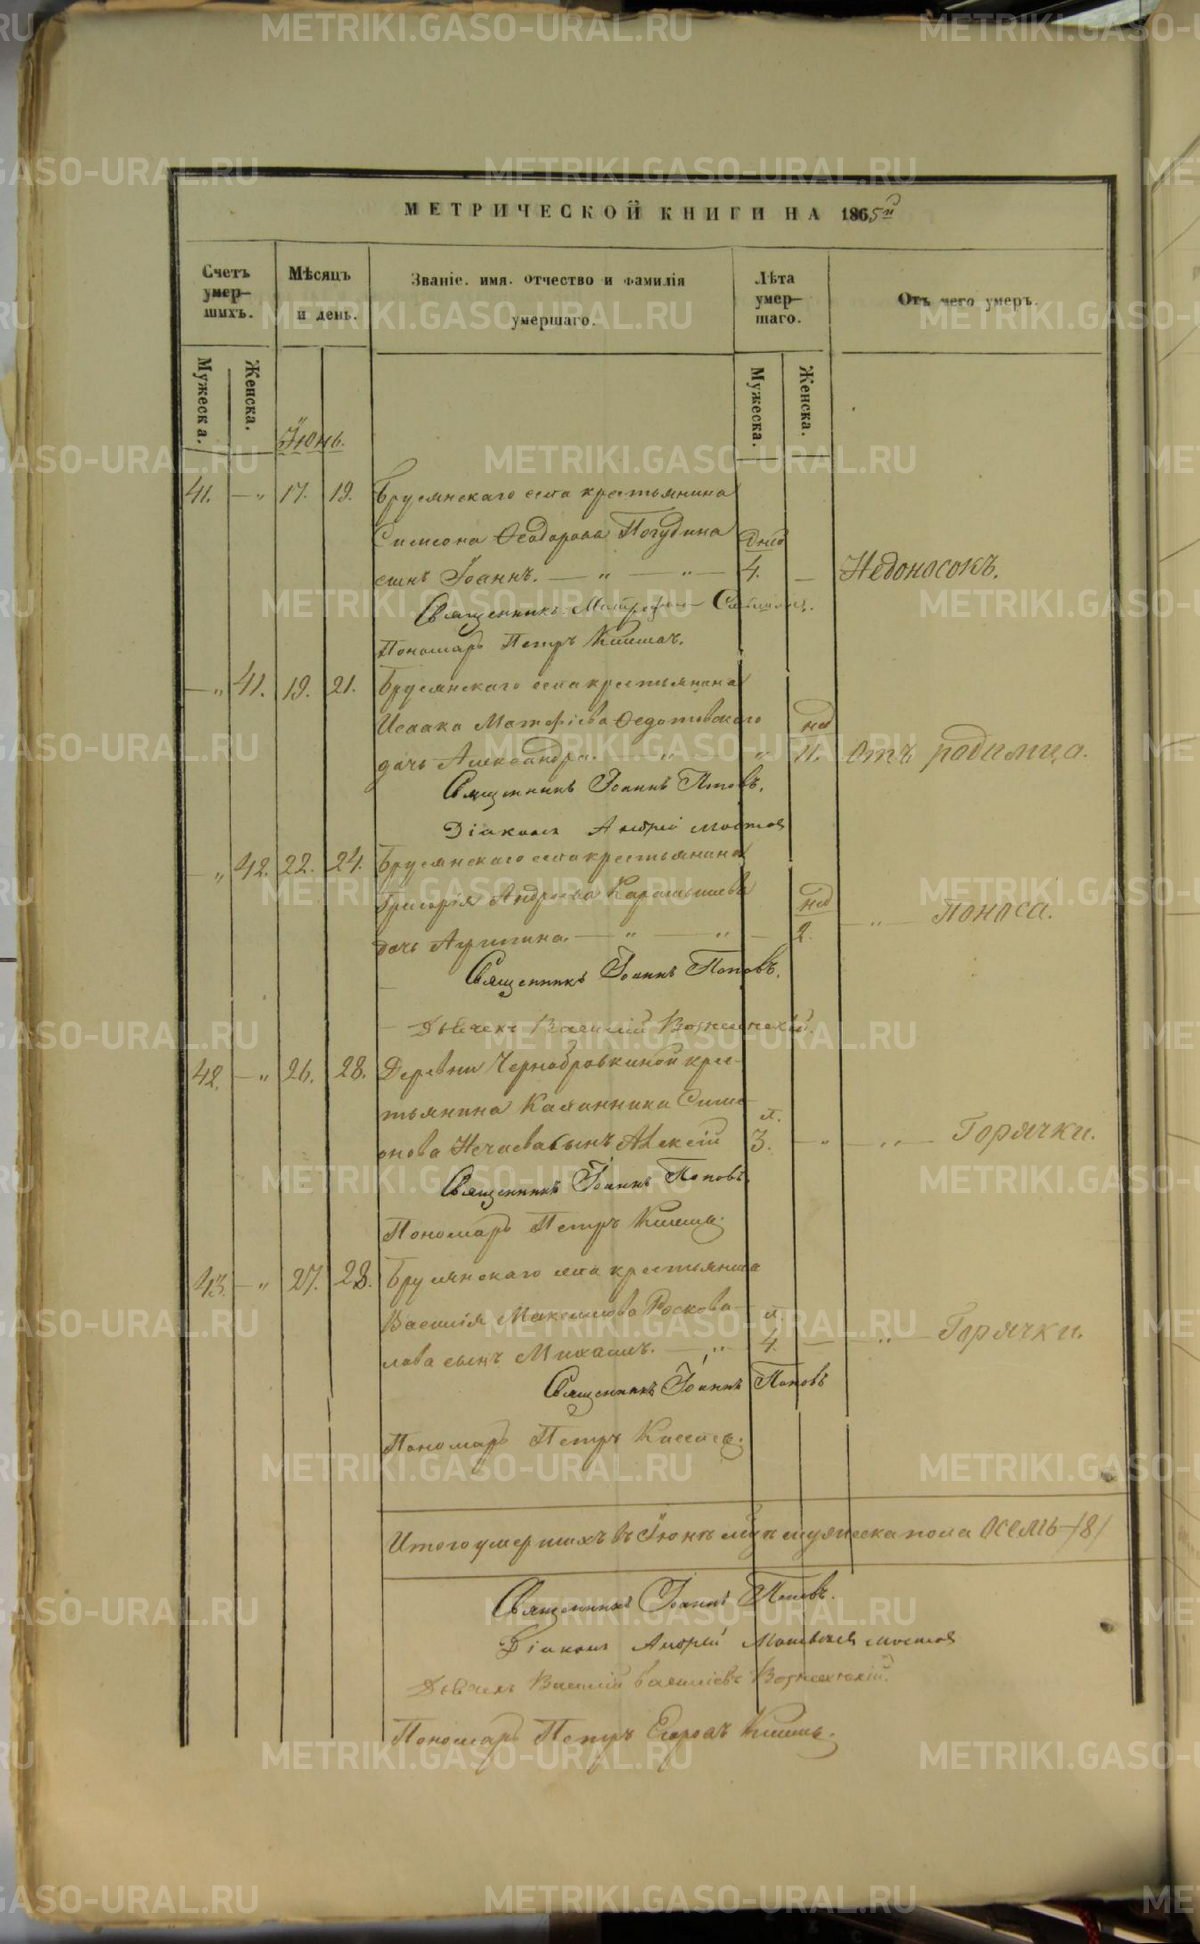 МЕТРИЧЕСКОЙ КНИГИ НА 1865й
Счетъ умер–шихъ.
Мѣсяцъ и день.
Званіе, имя, отчество и фамилія умершаго.
Лѣта умер–шаго.
Отъ чего умеръ.
Мужеска.
Женска.
Мужеска.
Женска.
Іюнь.
41. — „ 17. 19. Брусянскаго села крестьянина
Симеона Ѳеодорова Погудина
сынъ Іоаннъ. — „ — „ — Дней 4. — Недоносокъ.
Священникъ
Пономарь Петръ
— „ 41. 19. 21. Брусянскаго села крестьянина
Исаака Матѳіева Ѳедотовскаго
дочь Александра. „ „ нед 11. Отъ родимца.
Священникъ Іоаннъ Поповъ.
Діаконъ Андрей
— „ 42. 22. 24. Брусянскаго села крестьянина
Григорія Андреева Карамышева
дочь Агрипина. — „ — „ — нед 2. „ Поноса.
Священникъ Іоаннъ Поповъ.
Дьячекъ Василій Вознесенскій.
42. — „ 26. 28. Деревни Чернобровкиной крес–
тьянина Калинника Симе–
онова Нечаева сынъ Алексій л. 3. — „ — „ — Горячки.
Священникъ Іоаннъ Поповъ.
Пономарь Петръ
43. — „ 27. 28. Брусянскаго села крестьянина
Василія Максимова Роскова–
лова сынъ Михаилъ. — „ — л. 4. — „ — Горячки.
Священникъ Іоаннъ Поповъ
Пономарь Петръ
Итого умершихъ въ Іюнѣ м-цѣ мужеска пола осемь /8/
Священникъ Іоаннъ Поповъ.
Діаконъ Андрей
Дьячекъ Василій Васильевъ Вознесенскій.
Пономарь Петръ Егоровъ
METRIKI.GASO-URAL.RU